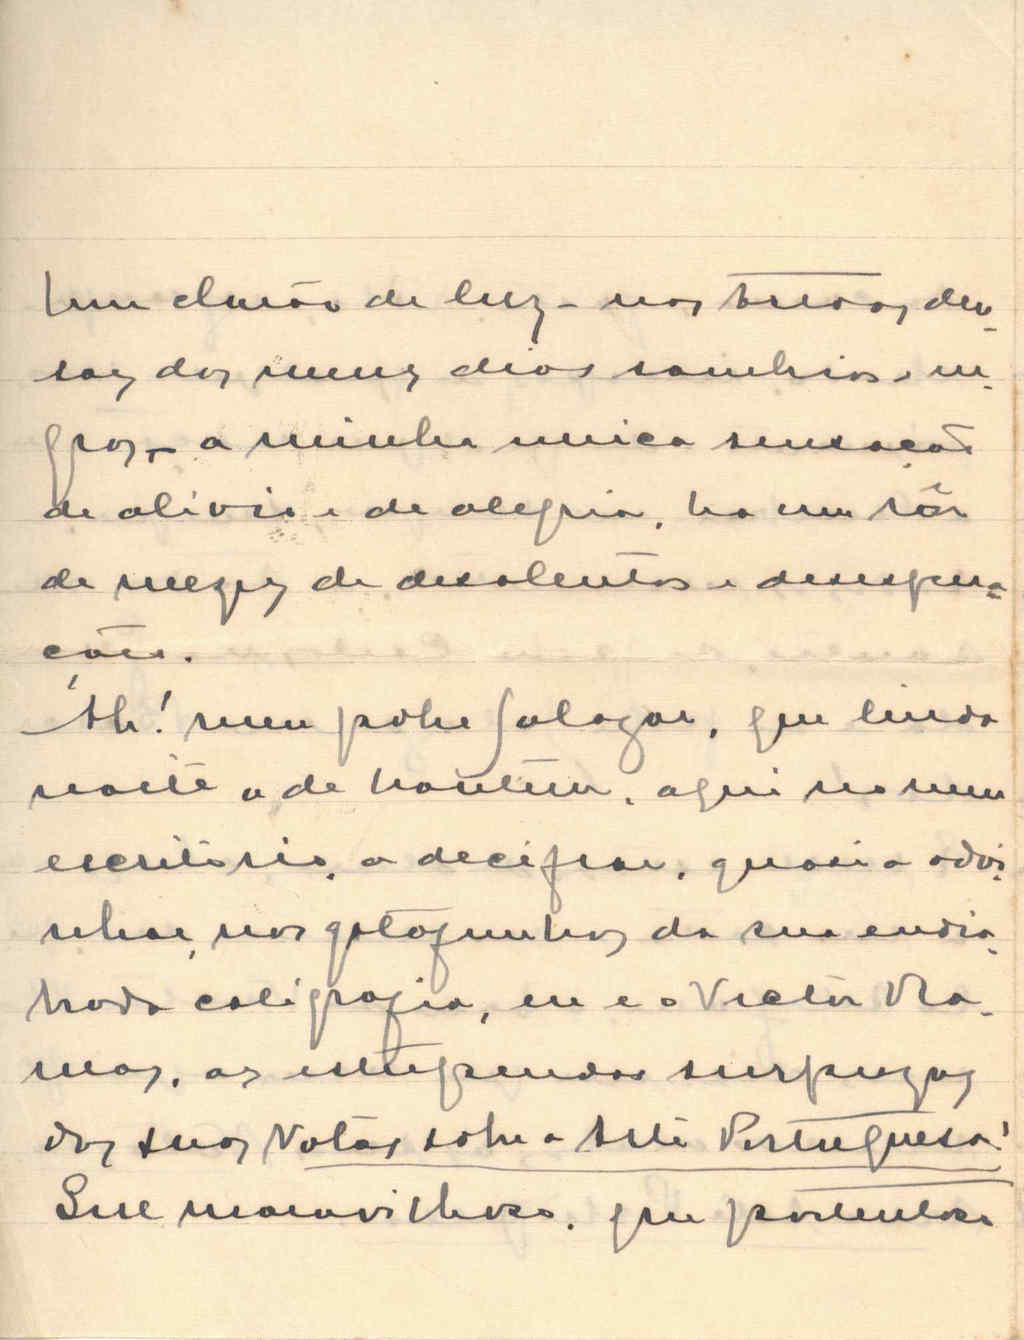 Um clarão de luz - nas trevas den-
sas dos meus dias sombrios e ne-
gros - a minha unica sensação
de alivio e de alegria, ha um rôr
de mezes de desalentos e desespera-
ções.
Ah! meu pobre Salazar, que linda
noite a de hontem, aqui no meu
escritorio, a decifrar, quasi a advi-
nhar, nos gatafunhos da sua endia-
brada caligrafia, eu e o Victor Ra-
mos, as estupendas surprezas
das suas Notas sobre a Arte Portuguesa!
Que maravilhoso, que portentoso